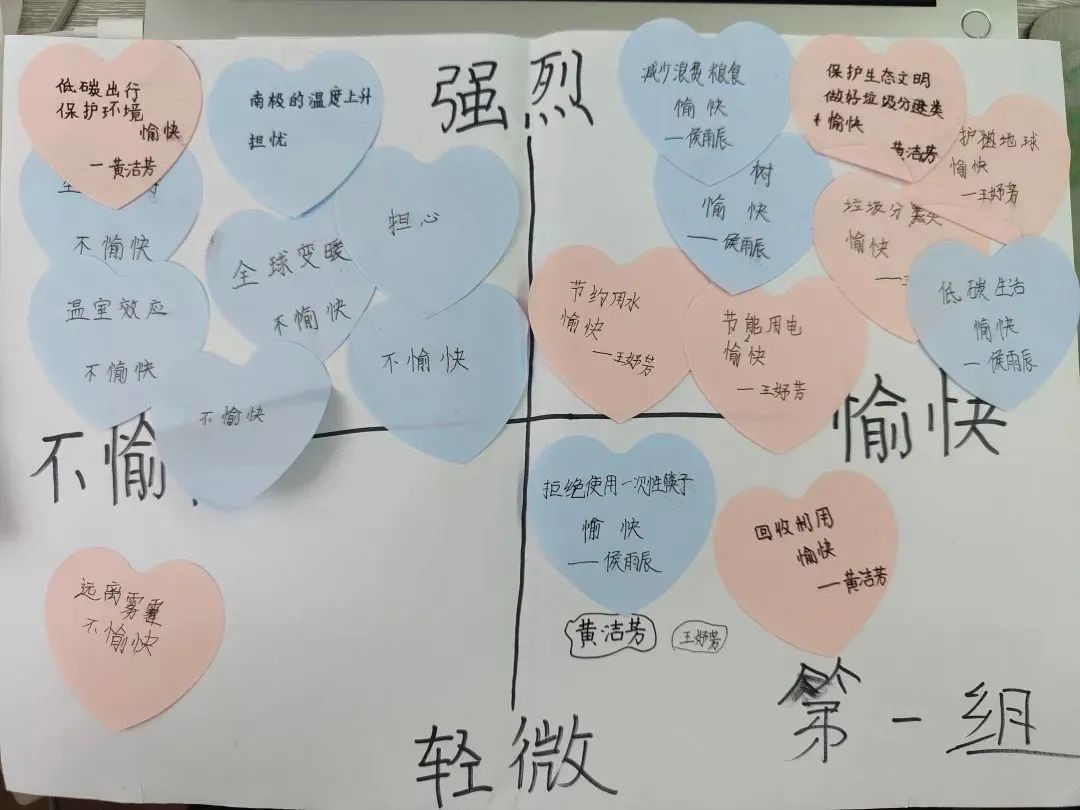 强烈
低碳出行
保护环境
愉快
一黄洁芳
不愉快
南极的温度上升
担忧
担心
全球变暖
不愉快
温室效应
不愉快
不愉快
不愉快
减少浪费粮食
愉快
——侯雨辰
树
愉快
——侯雨辰
保护生态文明
做好垃圾分类
愉快
黄洁芳
护祖地球
愉快
—王妤芳
垃圾分类
愉快
—王
低碳生活
愉快
—侯雨辰
节约用水
愉快
—王妤芳
节能用电
愉快
—王妤芳
不愉
愉快
拒绝使用一次性筷子
愉快
——侯雨辰
回收利用
愉快
—黄洁芳
远离雾霾
不愉快
黄洁芳
王妤芳
轻微
第一组